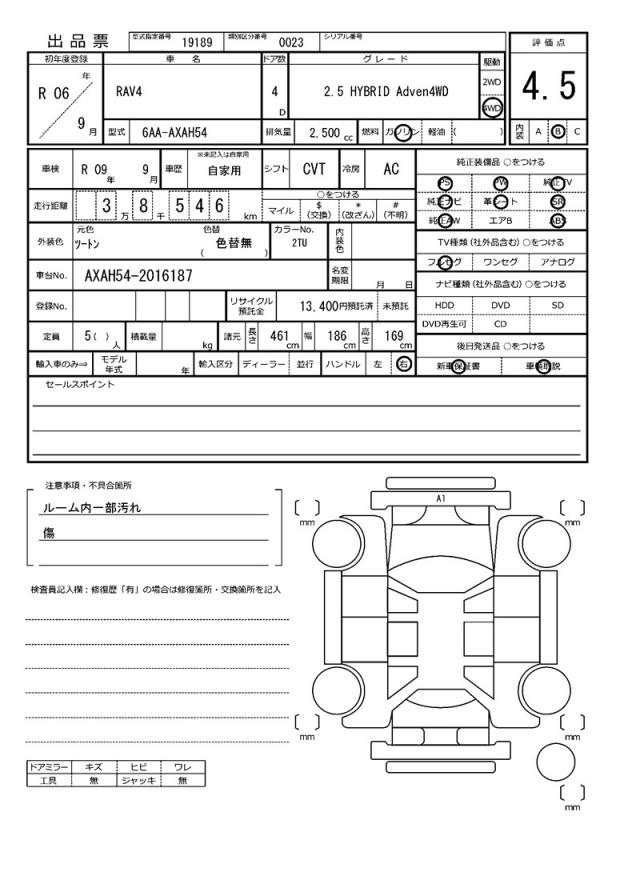 出品票 型式指定番号 19189 類別区分番号 0023 シリアル番号
評価点
4.5
内装 A B C
初年度登録 車名 ドア数 グレード 駆動
R 06 年 9 月
RAV4 4 D 2.5 HYBRID Adven4WD 2WD 4WD
型式 6AA-AXAH54 排気量 2,500 cc 燃料 ガソリン 軽油 ( )
車検 R 09 年 9 月 車歴 ※未記入は自家用 自家用 シフト CVT 冷房 AC
走行距離 3 万 8 千 5 4 6 km
○をつける
マイル $ (交換) * (改ざん) # (不明)
外装色 元色 ツートン 色替 色替無 ( ) カラーNo. 2TU 内装色
車台No. AXAH54-2016187 名変期限 月 日
登録No. リサイクル預託金 13,400円預託済 未預託
定員 5( ) 人 積載量 kg 諸元 長さ 461 cm 幅 186 cm 高さ 169 cm
輸入車のみ⇒ モデル年式 年 輸入区分 ディーラー 並行 ハンドル 左 右
純正装備品 ○をつける
PS PW 純正TV
純正ナビ 革シート SR
純正AW エアB ABS
TV種類(社外品含む)○をつける
フルセグ ワンセグ アナログ
ナビ種類(社外品含む)○をつける
HDD DVD SD
DVD再生可 CD
後日発送品 ○をつける
新車保証書 車輌取説
セールスポイント
注意事項・不具合箇所
ルーム内一部汚れ
傷
検査員記入欄：修復歴「有」の場合は修復箇所・交換箇所を記入
ドアミラー キズ ヒビ ワレ
工具 無 ジャッキ 無
A1
[ ] mm
[ ] mm
[ ] mm
[ ] mm
[ ] mm